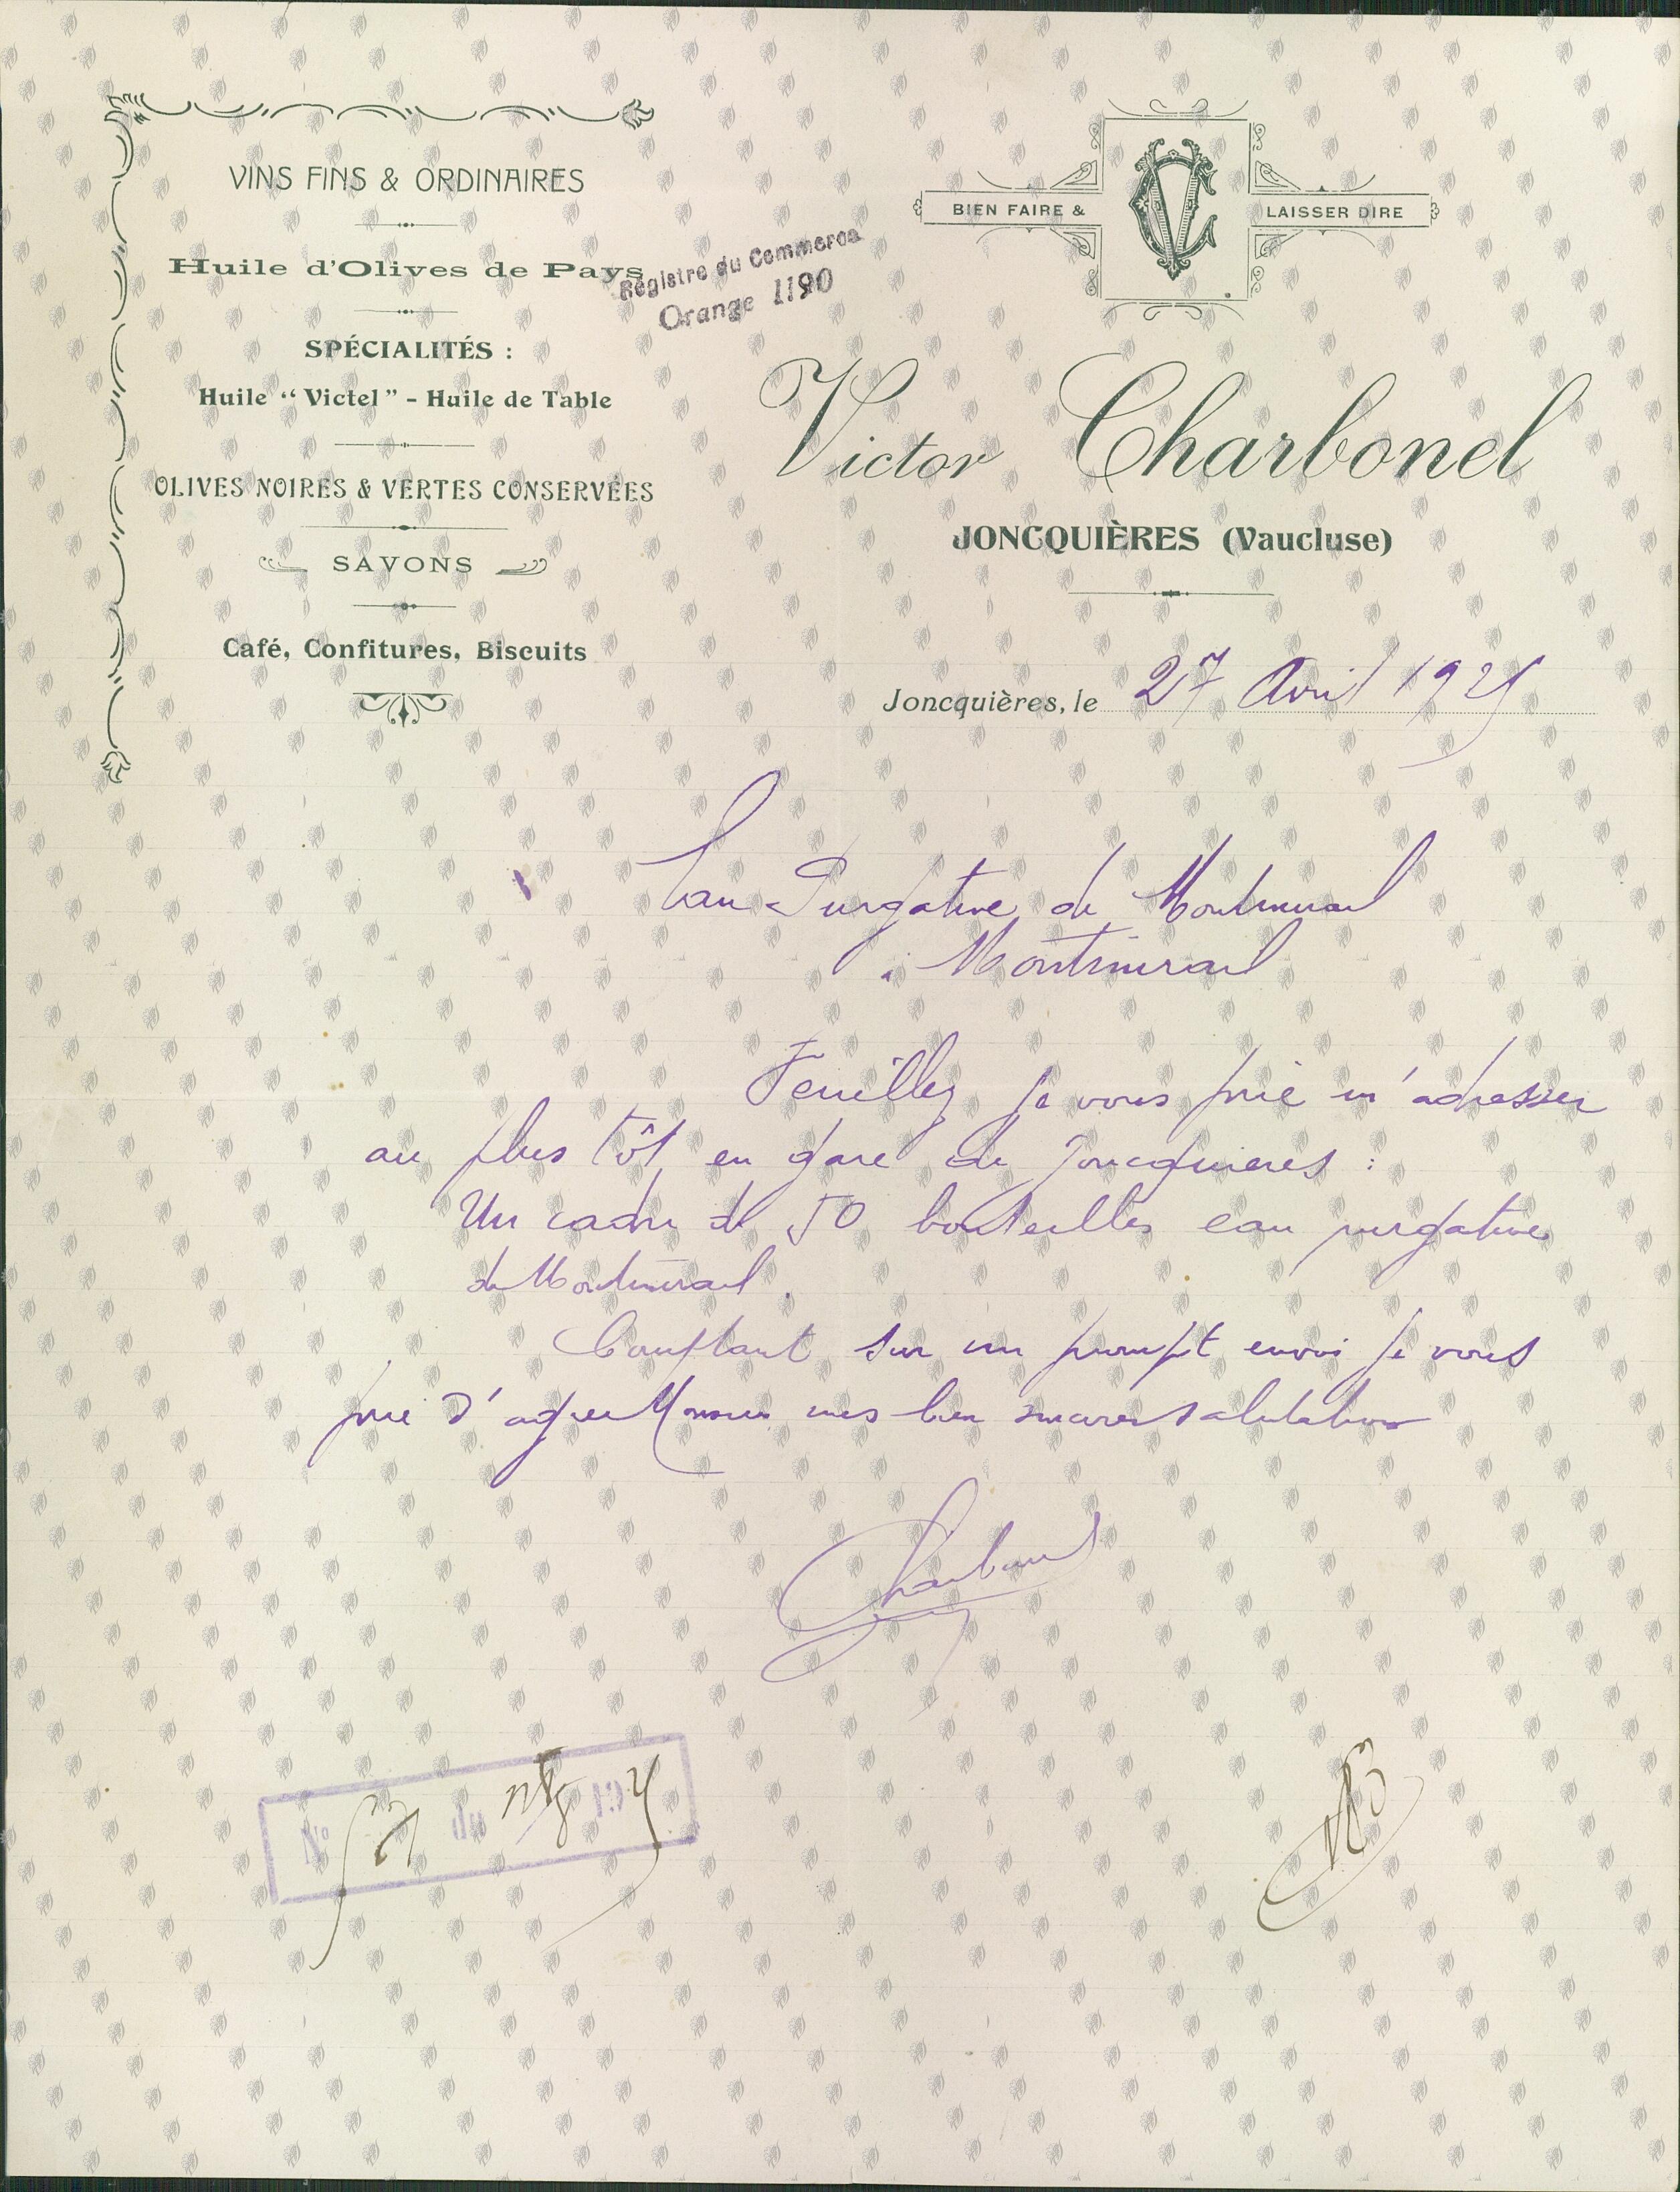 VINS FINS & ORDINAIRES
Huile d'Olives de Pays
SPÉCIALITÉS :
Huile "Victel" - Huile de Table
OLIVES NOIRES & VERTES CONSERVÉES
SAVONS
Café, Confitures, Biscuits
Registre du Commerce
Orange 1190
BIEN FAIRE & VC LAISSER DIRE
Victor Charbonel
JONCQUIÈRES (Vaucluse)
Joncquières, le 27 Avril 1925
Eau Purgative de Montmirail
à Montmirail
Veuillez je vous prie m'adresser
au plus tôt en gare de Joncquieres :
Un cadre de 50 bouteilles eau purgative
de Montmirail.
Comptant sur un prompt envoi je vous
prie d'agreer Monsieur mes bien sinceres salutations
Charbonel
N° du 192